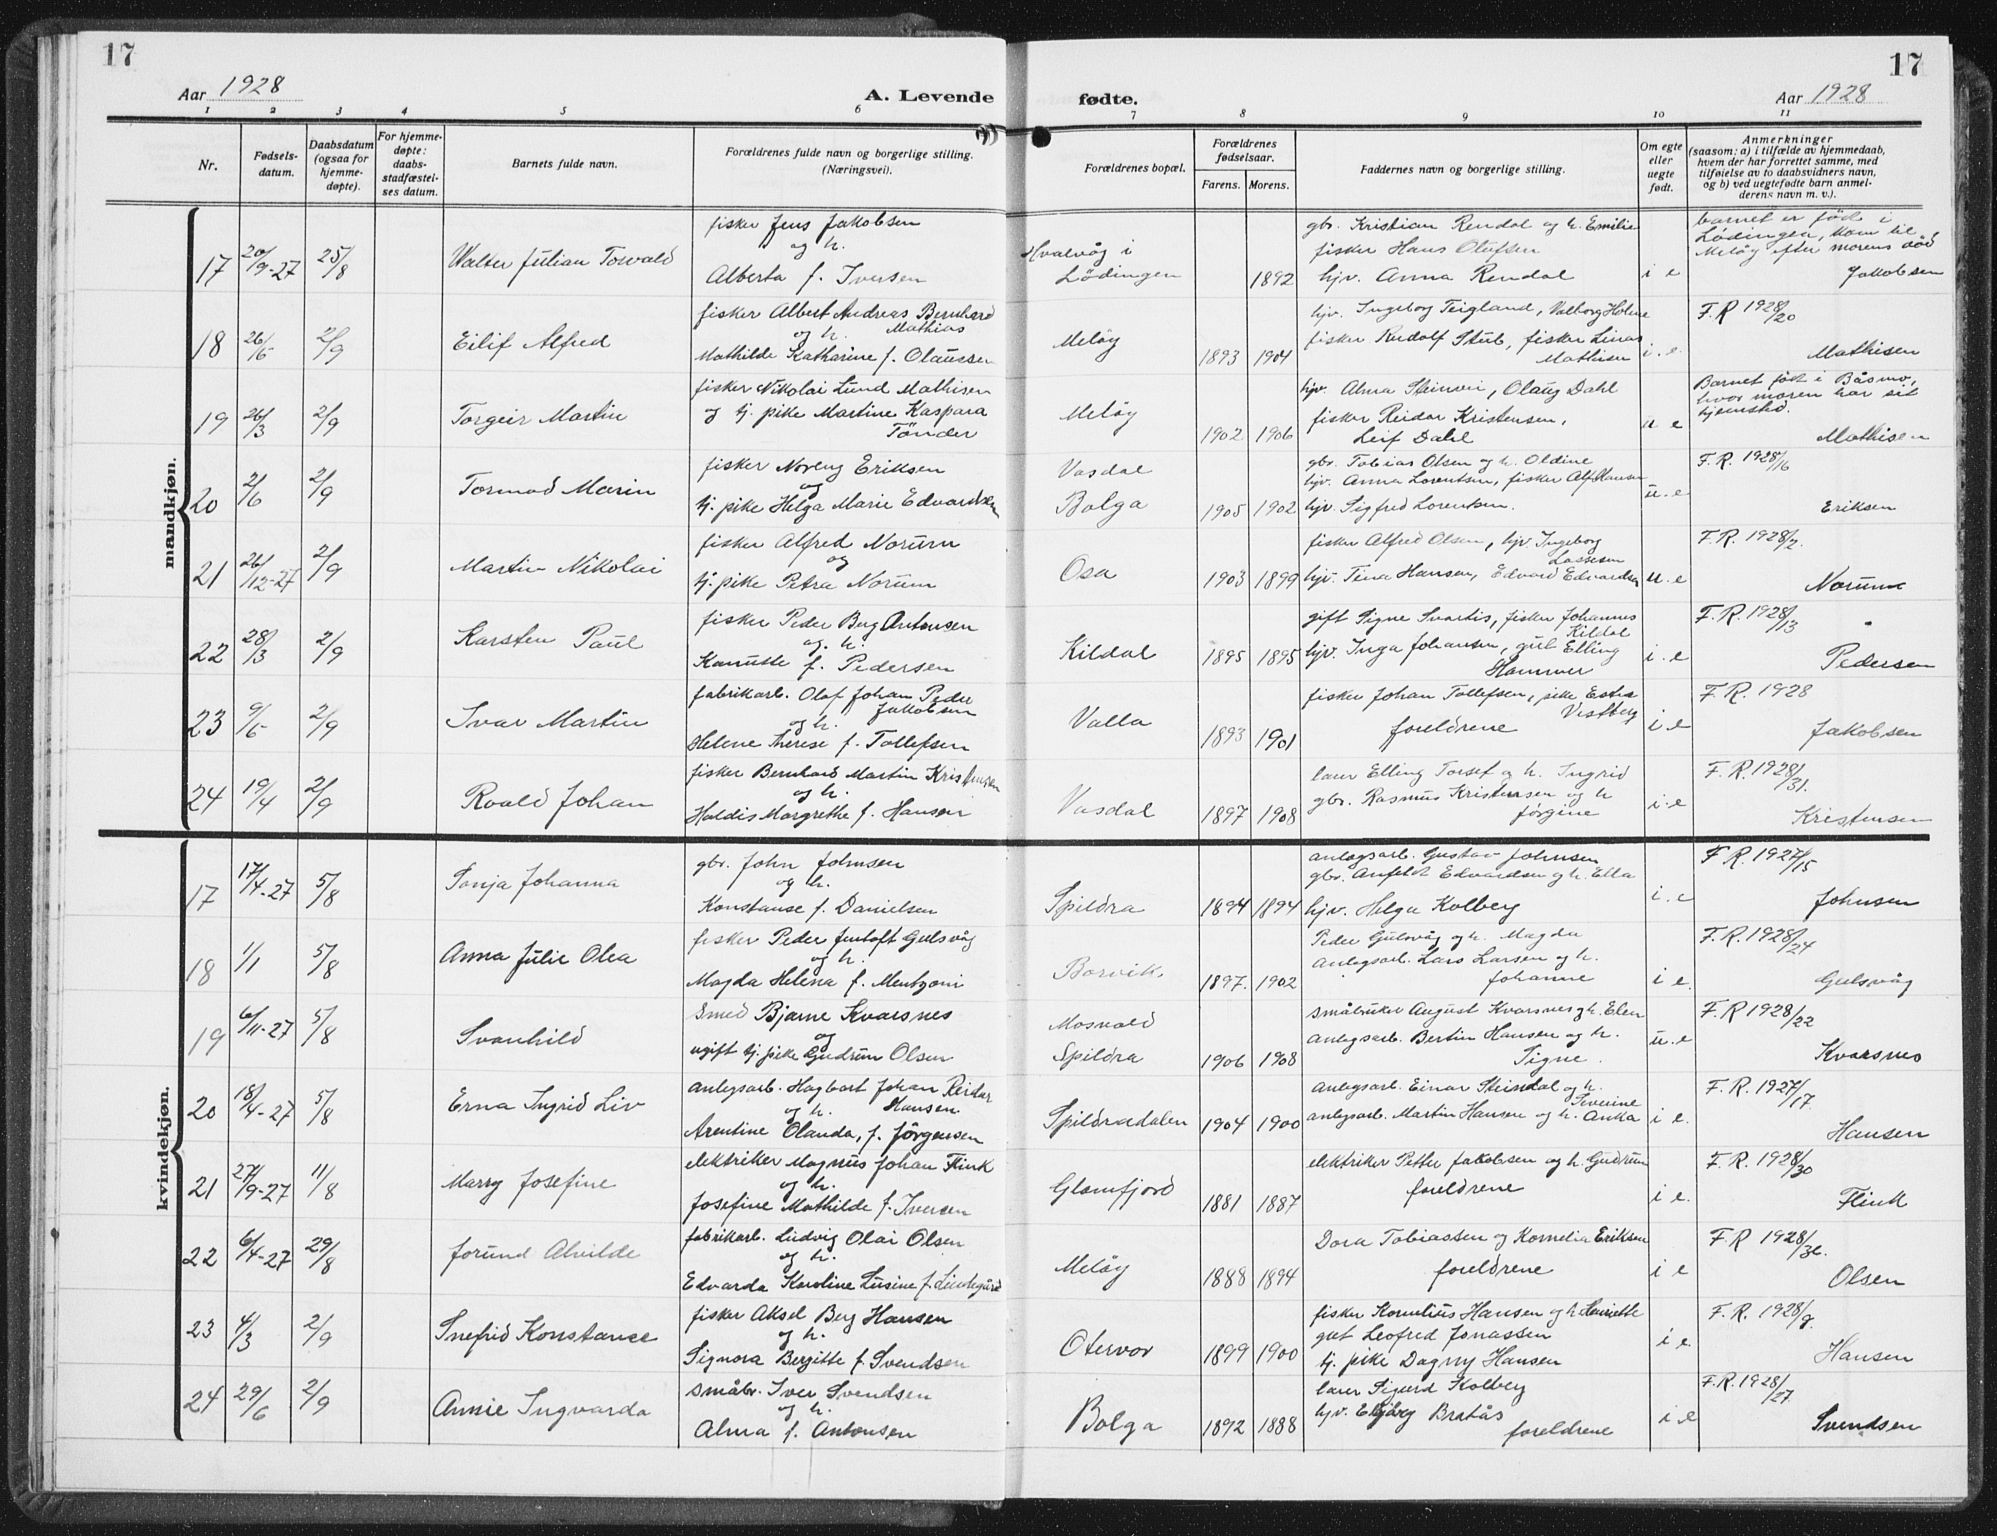 17
17
Aar 1928
A. Levende
fødte.
Aar 1928
1 2 3 4 5 6 7 8 9 10 11
Nr.
Fødsels-
datum.
Daabsdatum
(ogsaa for
hjemme-
døpte).
For hjemme-
døpte:
daabs-
stadfæstel-
ses datum.
Barnets fulde navn.
Forældrenes fulde navn og borgerlige stilling.
(Næringsvei).
Forældrenes bopæl.
Forældrenes
fødselsaar.
Farens. Morens.
Faddernes navn og borgerlige stilling.
Om egte
eller
uegte
født.
Anmerkninger
(saasom: a) i tilfælde av hjemmedaab,
hvem der har forrettet samme, med
tilføielse av to daabsvidners navn,
og b) ved uegtefødte barn anmel-
derens navn m. v.).
mandkjøn.
17 20/9-27 25/8 Walter Julian Torvald
fisker Jens Jakobsen
og h.
Alberta f. Iversen
Hvalvåg i
Lödingen
1892
gbr. Kristian Rendal og h. Emilie
fisker Hans Olufsen
hjv. Anna Rendal
i e
barnet er födt i
Lödingen, kom til
Melöy efter morens död
Jakobsen
18 26/5 2/9 Eilif Alfred
fisker Albert Andreas Bernhard
Mathias
og h.
Mathilde Katharine f. Olaussen
Melöy
1893 1904
hjv. Ingeborg Teigland, Valborg Holene
fisker Rudolf Stub, fisker Linas
Mathisen
i. e.
F. R 1928/20
Mathisen
19 26/3 2/9 Torgeir Martin
fisker Nikolai Lund Mathisen
og tj. pike Martine Kaspara
Tönder
Melöy
1902 1906
hjv. Alma Steinvei, Olaug Dahl
fisker Reidar Kristensen,
Leif Dahl
u e
Barnet födt i Båsmo,
hvor moren har sit
hjemsted.
Mathisen
20 2/6 2/9 Tormod Marin
fisker Noreng Eriksen
og
tj. pike Helga Marie Edvardsen
Vasdal
Bolga
1905 1902
gbr. Tobias Olsen og h. Oldine
hjv. Anna Lorentsen, fisker Alf Hansen
hjv. Sigfred Lorentsen.
u. e
F. R. 1928/16
Eriksen
21 26/12-27 2/9 Martin Nikolai
fisker Alfred Norum
og
tj. pike Petra Norum
Osa
1903 1899
fisker Alfred Olsen, hjv. Ingeborg
Lassesen
hjv. Tina Hansen, Edvard Edvardsen
u. e
F. R. 1928/2.
Norum
22 28/3 2/9 Karsten Paul
fisker Peder Berg Antonsen
og. h.
Kanutte f. Pedersen
Kildal
1895 1895
gift Signe Svartis, fisker Johannes
Kildal
hjv. Inga Johansen, gut Elling
Hammer
i. e
F. R. 1928/13
Pedersen
23 9/5 2/9 Ivar Martin
fabrikarb. Olaf Johan Peder
Jakobsen
og h.
Helene Therese f. Tollefsen
Valla
1893 1901
fisker Johan Tollefsen, pike Ester
Vestberg
foreldrene
i e
F. R. 1928
Jakobsen
24 19/4 2/9 Roald Johan
fisker Bernhard Martin Kristensen
og h.
Haldis Margrethe f. Hansen
Vasdal
1897 1908
lærer Elling Torsef og h. Ingrid
gbr. Rasmus Kristensen og h
Jörgine
i. e
F. R. 1928/31.
Kristensen
kvindekjøn.
17 17/4-27 5/8 Sonja Johanna
gbr. John Johnsen
og h.
Konstanse f. Danielsen
Spildra
1894 1894
anlegsarb. Gustav Johnsen
gbr. Anfeldt Edvardsen og h. Ella
hjv. Helga Kolberg
i. e
F R. 1927/15
Johnsen
18 1/1 5/8 Anna Julie Olea
fisker Peder Jentoft Gulsvåg
og h.
Magda Helena f. Mentzoni
Borvik
1897. 1902
Peder Gulsvåg og h. Magda
anlegsarb. Lars Larsen og h.
Johanne
i e.
F. R. 1928/24
Gulsvåg
19 6/11-27 5/8 Svanhild
smed Bjarne Kvarsnes
og
ugift tj. pike Gudrun Olsen
Mosvold
Spildra
1906 1908
småbruker August Kvarsnes og h. Elen
anlegsarb. Bertin Hansen og h.
Signe.
u. e
F. R 1928/22
Kvarsnes
20 18/4-27 5/8 Erna Ingrid Liv
anlegsarb. Hagbart Johan Reidar
Hansen.
og h.
Arentine Olanda, f. Jörgensen
Spildradalen
1904 1900
anlegsarb. Einar Steindal og h.
Severine
anlegsarb. Martin Hansen og h. Anka
i e.
F. R. 1927/17
Hansen
21 27/9-27 11/8 Marry Josefine
elektriker Magnus Johan Flink
og h.
Josefine Mathilde f. Iversen
Glomfjord
1881 1887
elektriker Petter Jakobsen og h. Gudrun
foreldrene
i e.
F. R. 1928/30
Flink
22 6/4-27 29/8 Jorund Alvilde
fabrikarb. Ludvig Olai Olsen
og h.
Edvarda Karoline Lusine f. Lindegård
Melöy
1888 1894
Dora Tobiassen og Kornelia Eriksen
foreldrene
i e
F. R 1928/32.
Olsen
23 4/3 2/9 Snefrid Konstance
fisker Aksel Berg Hansen
og h.
Signora Bergitte f. Svendsen
Otervær
1899 1900
fisker Kornelius Hansen og h Henriette
gut Leofred Jonassen
tj. pike Dagny Hansen
i e.
F. R. 1928/8.
Hansen
24 29/6 2/9 Annie Ingvarda
småbr. Iver Svendsen
og h.
Alma f. Antonsen
Bolga
1892 1888
lærer Sigurd Kolberg
hjv. Elbjörg Bratås
foreldrene
i e
F. R. 1928/27
Svendsen